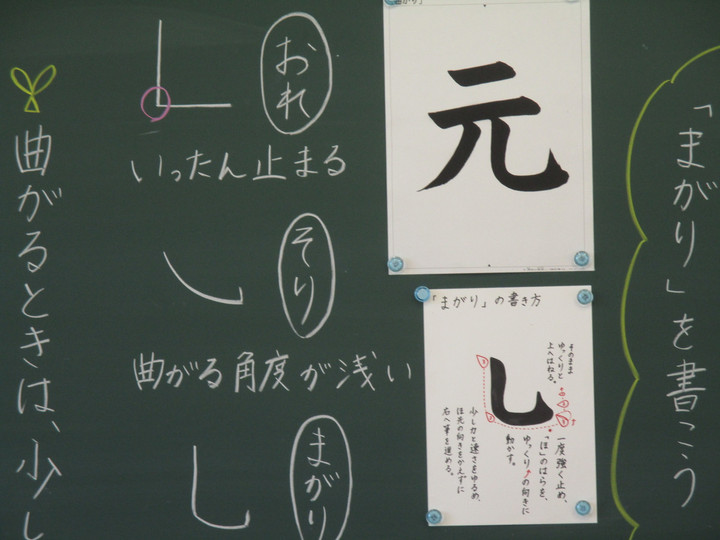 「まがり」を書こう
元
「まがり」の書き方
そのまま
ゆっくりと
上へはねる。
一度強く止め、
「ほ」のはらを、
ゆっくりの向きに
動かす。
少し力と速さをゆるめ、
ほ先の向きをかえずに
右へ筆を進める。
おれ
いったん止まる
そり
曲がる角度が浅い
まがり
曲がるときは、少し